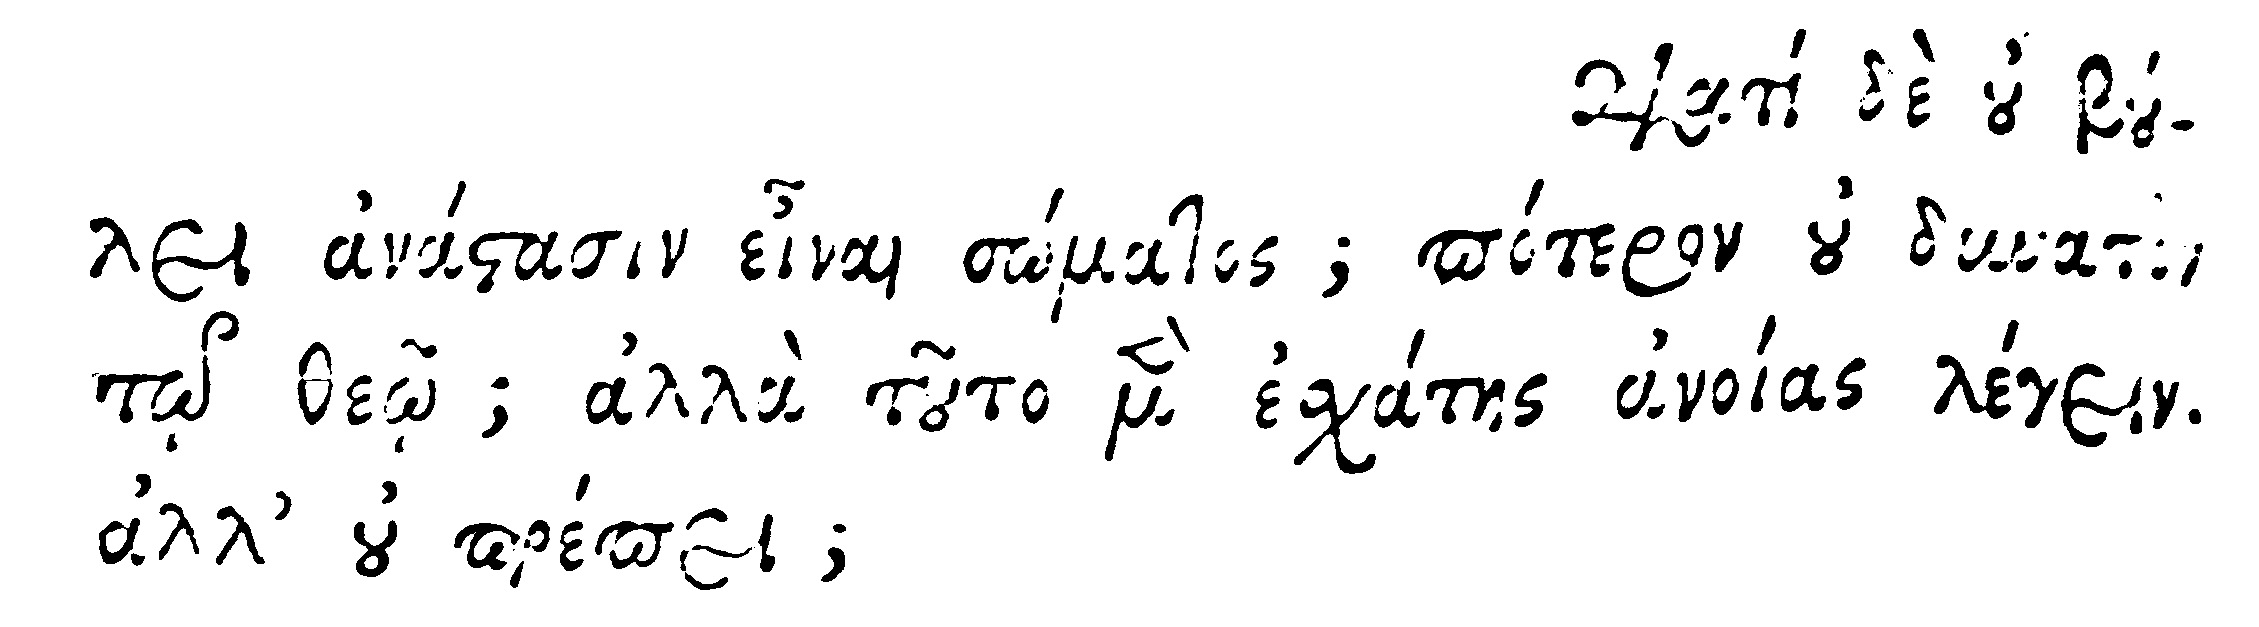 Διατί δὲ οὐ βού-
λει ἀνάστασιν εἶναι σώματος; πότερον οὐ δυνατὸν
τῷ θεῷ; ἀλλὰ τοῦτο μὲν ἐσχάτης ἀνοίας λέγειν.
ἀλλ’ οὐ πρέπει;